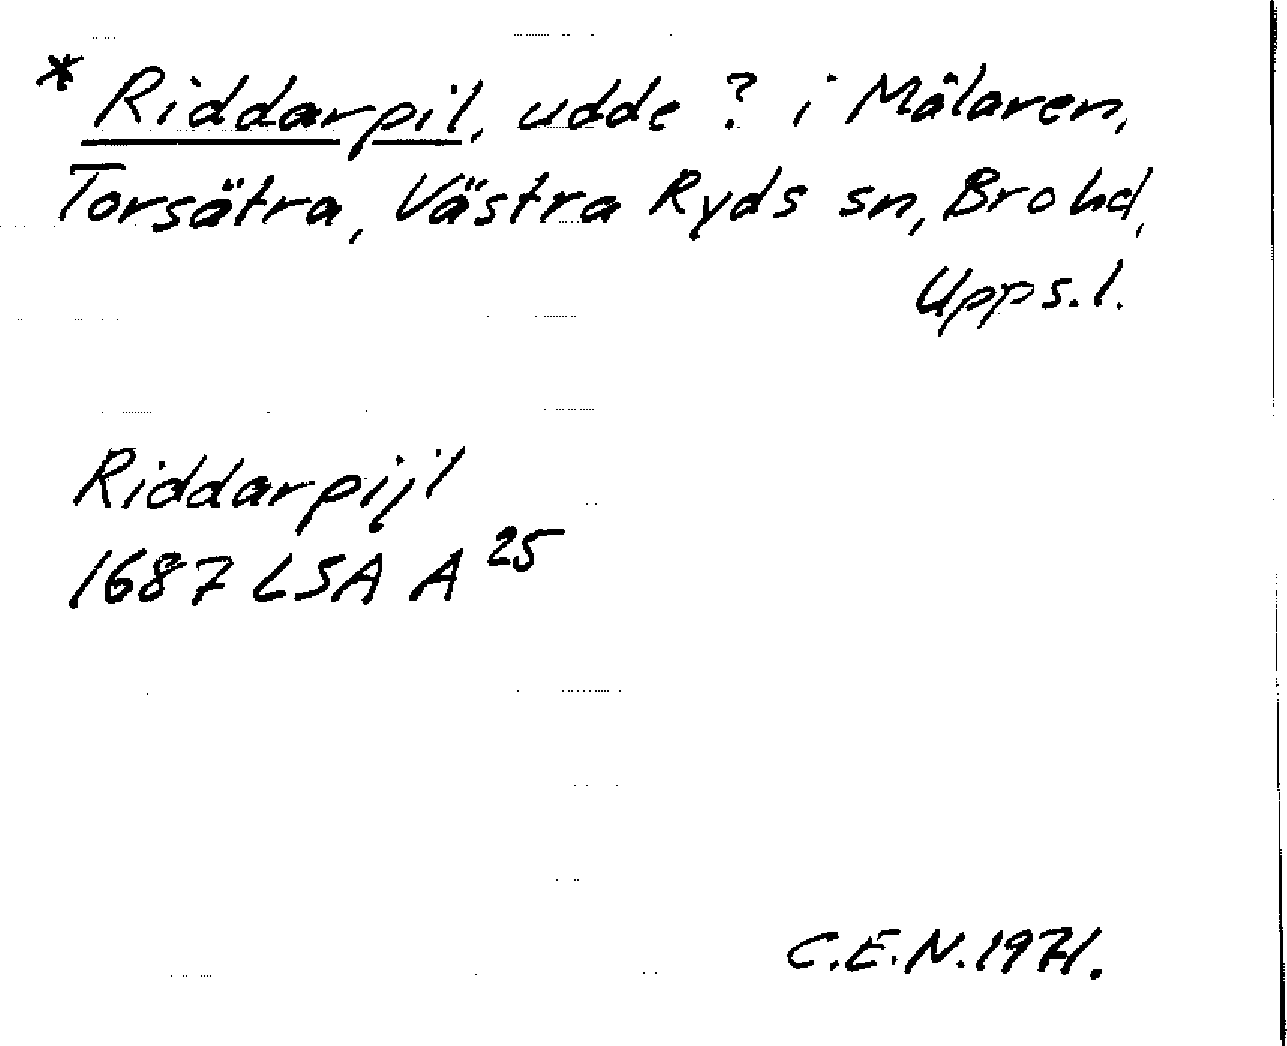 * Riddarpil, udde ? i Mälaren,
Torsätra, Västra Ryds sn, Bro hd,
Upps. l.
Riddarpijl
1687 LSA A 25
C.E.N. 1971.